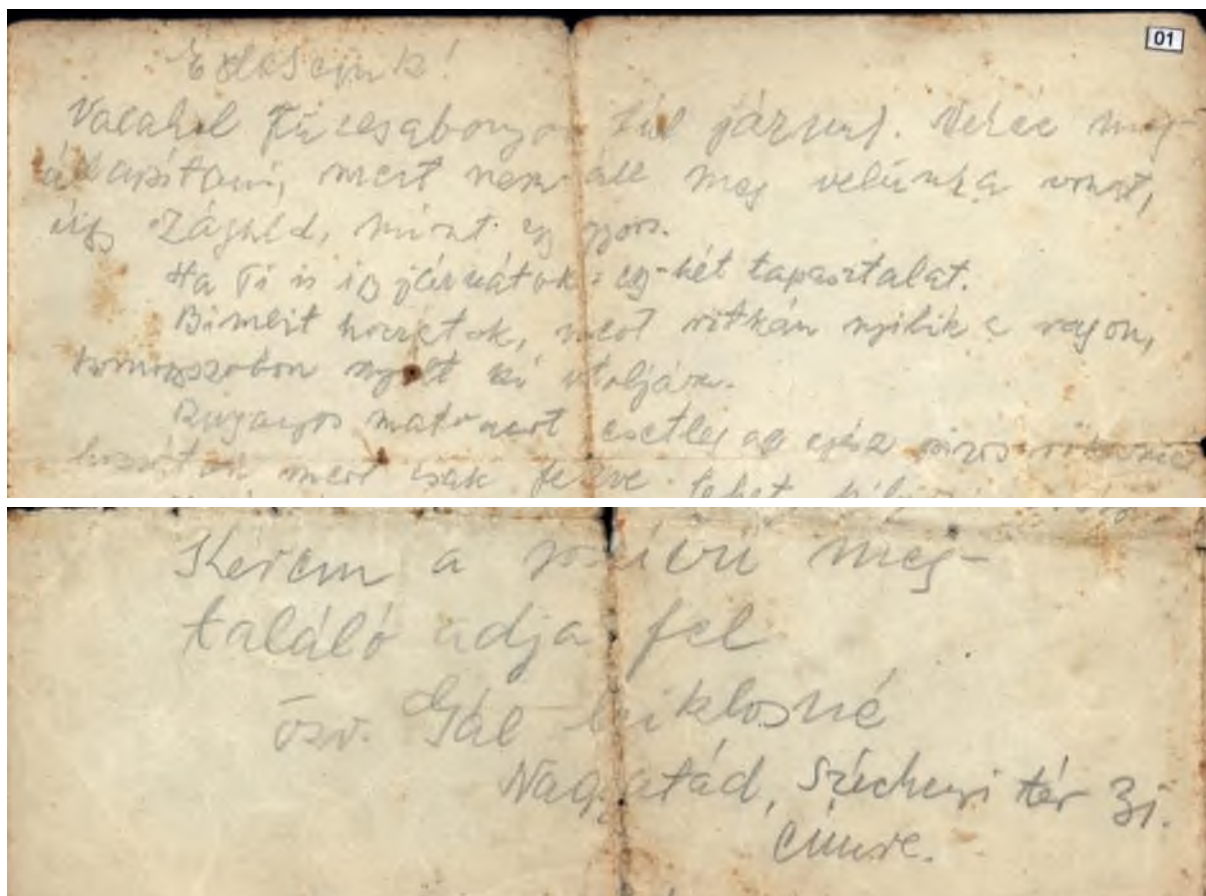 01
Édeseink!
Valahol Füzesabonyon túl járunk. Nehéz meg-
állapítani, mert nem áll meg velünk a vonat,
úgy száguld, mint egy gyors.
Ha Ti is így járnátok: egy-két tapasztalat.
hozzatok, mert ritkán nyílik a vagon,
nyílt ki utoljára.
esetleg az egész
mert csak fekve lehet
Kérem a jószívű meg-
találó adja fel
özv. Gál Miklósné
Nagyatád, Széchenyi tér
címre.